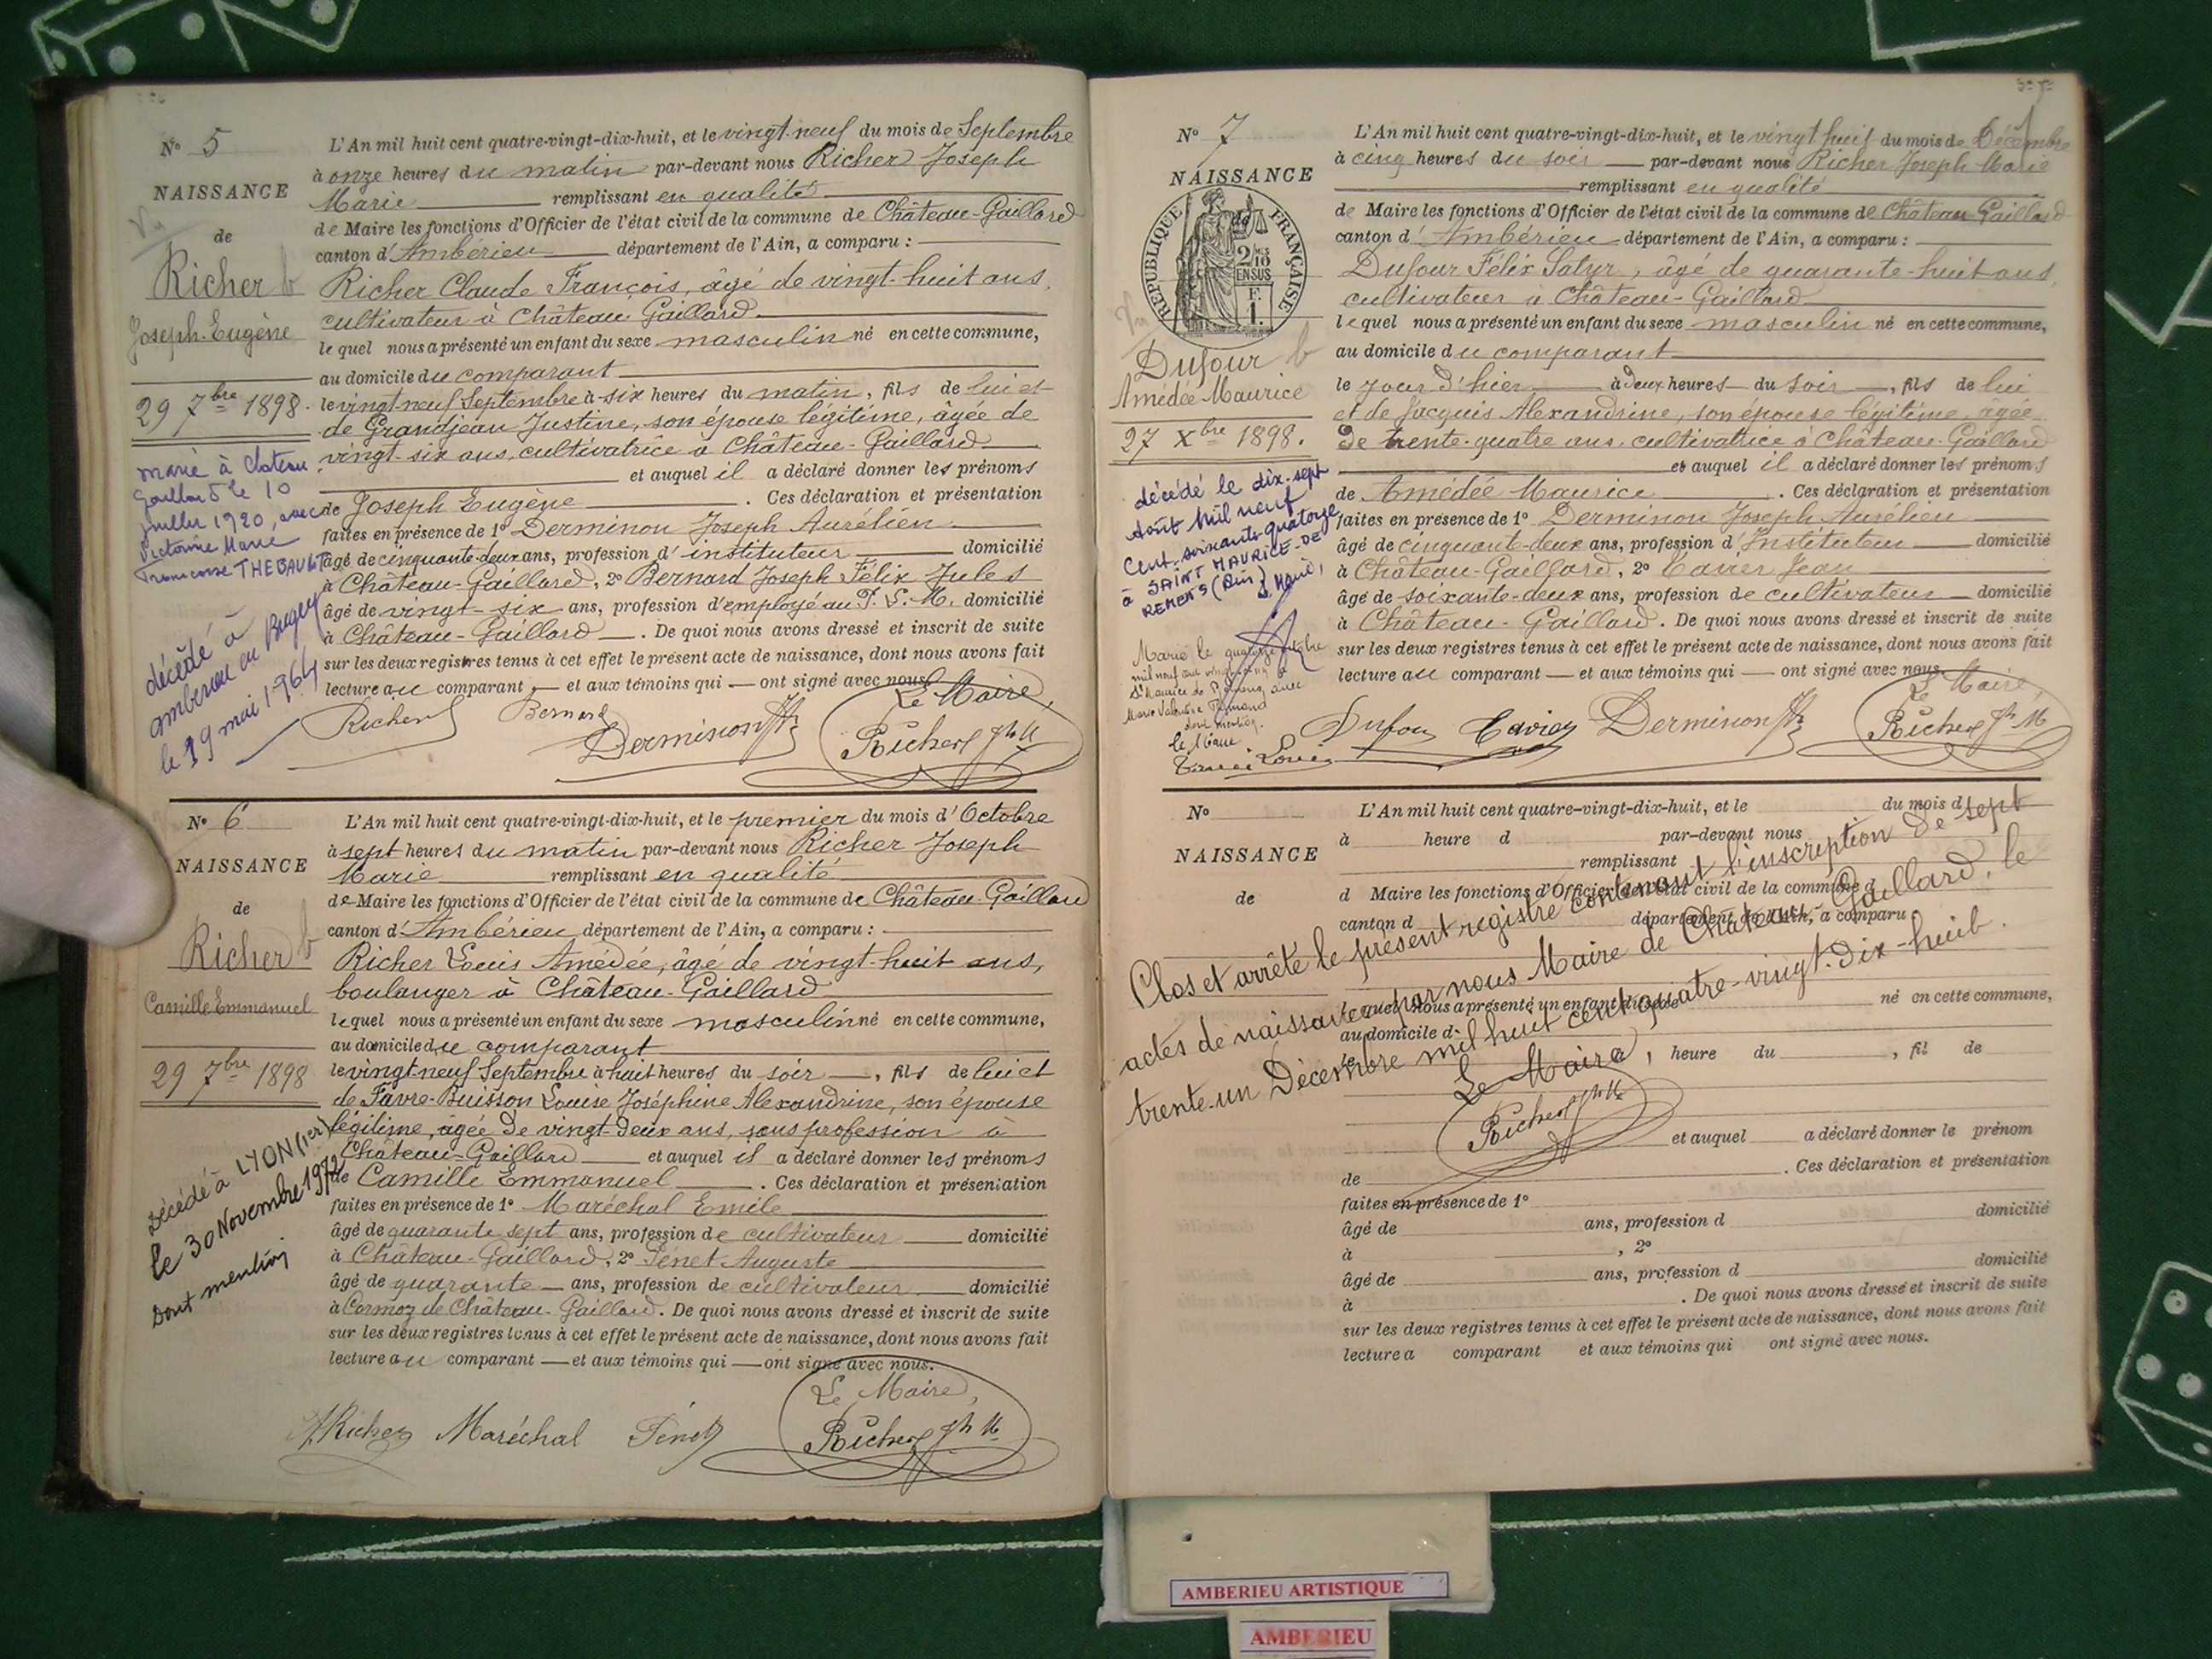 N° 5
NAISSANCE
de
Richer
Joseph-Eugène
29 7bre 1898.
marié à Chateau
Gaillard le 10
juillet 1920, avec
Victorine Marie
Françoise THEBAULT
décédé à
ambérieu en Bugey
le 19 mai 1964
L'An mil huit cent quatre-vingt-dix-huit, et le vingt-neuf du mois de Septembre
à onze heures du matin par-devant nous Richer Joseph
Marie remplissant en qualité
de Maire les fonctions d'Officier de l'état civil de la commune de Château-Gaillard
canton d'Ambérieu département de l'Ain, a comparu :
Richer Claude François, âgé de vingt-huit ans,
cultivateur à Château Gaillard
lequel nous a présenté un enfant du sexe masculin né en cette commune,
au domicile du comparant
le vingt-neuf Septembre à six heures du matin, fils de lui et
de Grandjean Justine, son épouse légitime, âgée de
vingt-six ans, cultivatrice à Château-Gaillard
et auquel il a déclaré donner les prénoms
de Joseph Eugène. Ces déclaration et présentation
faites en présence de 1° Derminon Joseph Aurélien
âgé de cinquante-deux ans, profession d'instituteur domicilié
à Château-Gaillard, 2° Bernard Joseph Félix Jules
âgé de vingt-six ans, profession d'employé au P. L. M. domicilié
à Château-Gaillard. De quoi nous avons dressé et inscrit de suite
sur les deux registres tenus à cet effet le présent acte de naissance, dont nous avons fait
lecture au comparant et aux témoins qui ont signé avec nous.
Richer Bernard Derminon Le Maire,
Richer Jh M
N° 6
NAISSANCE
de
Richer
Camille Emmanuel
29 7bre 1898
Décédé à LYON (1er)
le 30 Novembre 1972
Dont mention
L'An mil huit cent quatre-vingt-dix-huit, et le premier du mois d'Octobre
à sept heures du matin par-devant nous Richer Joseph
Marie remplissant en qualité
de Maire les fonctions d'Officier de l'état civil de la commune de Château-Gaillard
canton d'Ambérieu département de l'Ain, a comparu :
Richer Louis Amédée, âgé de vingt-huit ans,
boulanger à Château-Gaillard
lequel nous a présenté un enfant du sexe masculin né en cette commune,
au domicile du comparant
le vingt-neuf Septembre à huit heures du soir, fils de lui et
de Favre-Buisson Louise Joséphine Alexandrine, son épouse
légitime, âgée de vingt-deux ans, sans profession à
Château-Gaillard et auquel il a déclaré donner les prénoms
de Camille Emmanuel. Ces déclaration et présentation
faites en présence de 1° Maréchal Emile
âgé de quarante sept ans, profession de cultivateur domicilié
à Château-Gaillard, 2° Pénet Auguste
âgé de quarante ans, profession de cultivateur domicilié
à Cormoz de Château-Gaillard. De quoi nous avons dressé et inscrit de suite
sur les deux registres tenus à cet effet le présent acte de naissance, dont nous avons fait
lecture au comparant et aux témoins qui ont signé avec nous.
A Richer Maréchal Pénet Le Maire,
Richer Jh M
N° 7
NAISSANCE
RÉPUBLIQUE FRANÇAISE
2/10 EN SUS
F.
1.
Dufour
Amédée Maurice
27 Xbre 1898.
décédé le dix-sept
Août mil neuf
cent soixante-quatorze
à SAINT MAURICE-DE
REMENS (Ain)
Marié le quatorze
mil neuf cent vingt
St Maurice de Rémens, avec
Marie Valentine
dont mention.
le Maire
L'An mil huit cent quatre-vingt-dix-huit, et le vingt huit du mois de Décembre
à cinq heures du soir par-devant nous Richer Joseph Marie
remplissant en qualité
de Maire les fonctions d'Officier de l'état civil de la commune de Château Gaillard
canton d'Ambérieu département de l'Ain, a comparu :
Dufour Félix Satyr, âgé de quarante-huit ans,
cultivateur à Château-Gaillard
lequel nous a présenté un enfant du sexe masculin né en cette commune,
au domicile du comparant
le jour d'hier à deux heures du soir, fils de lui
et de Jacquis Alexandrine, son épouse légitime, âgée
de trente-quatre ans, cultivatrice à Château-Gaillard
et auquel il a déclaré donner les prénoms
de Amédée Maurice. Ces déclaration et présentation
faites en présence de 1° Derminon Joseph Aurélien
âgé de cinquante-deux ans, profession d'Instituteur domicilié
à Château-Gaillard, 2° Cavier Jean
âgé de soixante-deux ans, profession de cultivateur domicilié
à Château-Gaillard. De quoi nous avons dressé et inscrit de suite
sur les deux registres tenus à cet effet le présent acte de naissance, dont nous avons fait
lecture au comparant et aux témoins qui ont signé avec nous.
Dufour Cavier Derminon Le Maire,
Richer Jh M
N°
NAISSANCE
de
L'An mil huit cent quatre-vingt-dix-huit, et le du mois d
à heure d par-devant nous
remplissant
d Maire les fonctions d'Officier de l'état civil de la commune d
canton d département de l'Ain, a comparu :
lequel nous a présenté un enfant du sexe né en cette commune,
au domicile d
le à heure du , fil de
et auquel a déclaré donner le prénom
de . Ces déclaration et présentation
faites en présence de 1°
âgé de ans, profession d domicilié
à , 2°
âgé de ans, profession d domicilié
à . De quoi nous avons dressé et inscrit de suite
sur les deux registres tenus à cet effet le présent acte de naissance, dont nous avons fait
lecture a comparant et aux témoins qui ont signé avec nous.
Clos et arrêté le présent registre contenant l'inscription de sept
actes de naissance, par nous Maire de Château-Gaillard, le
trente-un Décembre mil huit cent quatre-vingt-dix-huit.
Le Maire,
Richer Jh M
AMBERIEU ARTISTIQUE
AMBERIEU